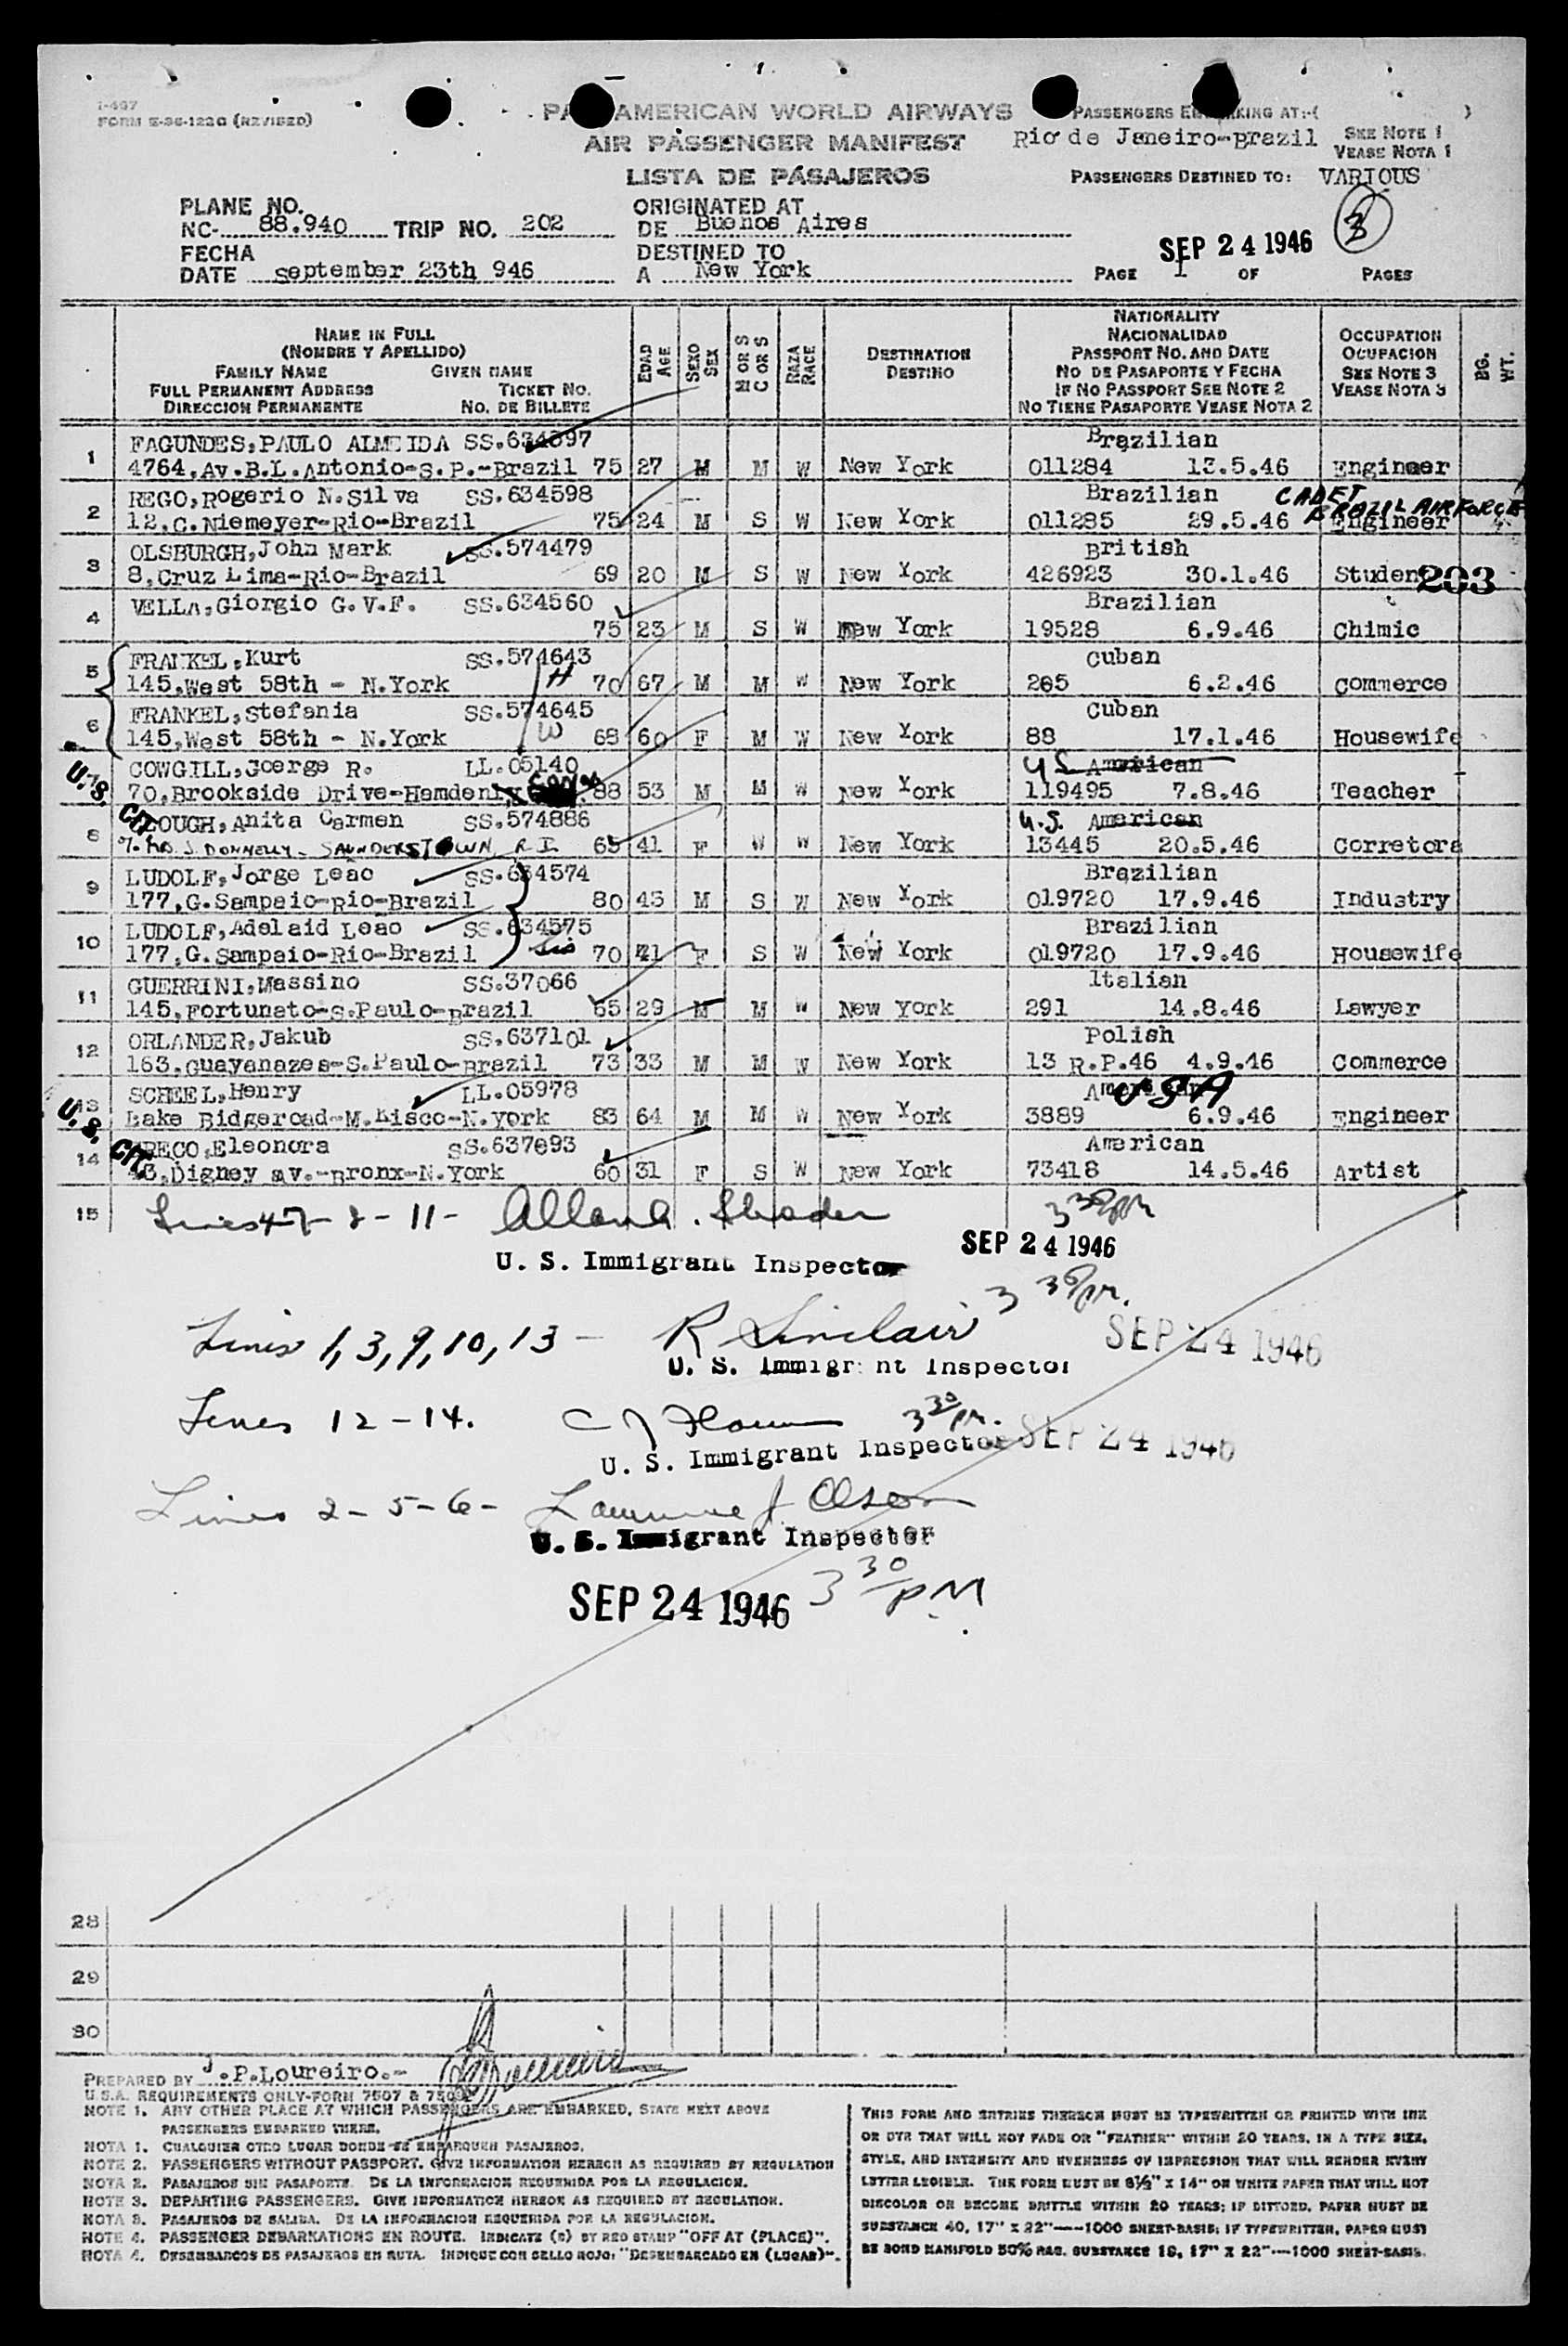 I-467
FORM E-36-122G (REVISED)
PAN AMERICAN WORLD AIRWAYS
AIR PASSENGER MANIFEST
LISTA DE PÁSAJEROS
PASSENGERS EMBARKING AT:-( )
Rio de Janeiro-Brazil
SEE NOTE 1
VEASE NOTA 1
PASSENGERS DESTINED TO: VARIOUS
3
PLANE NO.
NC- 88.940 TRIP NO. 202
ORIGINATED AT
DE Buenos Aires
FECHA
DATE september 23th 946
DESTINED TO
A New York
SEP 24 1946
PAGE 1 OF PAGES
NAME IN FULL
(NOMBRE Y APELLIDO)
FAMILY NAME GIVEN NAME
FULL PERMANENT ADDRESS TICKET NO.
DIRECCION PERMANENTE NO. DE BILLETE
EDAD AGE
SEXO SEX
M OR S C OR S
RAZA RACE
DESTINATION
DESTINO
NATIONALITY
NACIONALIDAD
PASSPORT NO. AND DATE
NO DE PASAPORTE Y FECHA
IF NO PASSPORT SEE NOTE 2
NO TIENE PASAPORTE VEASE NOTA 2
OCCUPATION
OCUPACION
SEE NOTE 3
VEASE NOTA 3
BG. WT.
1 FAGUNDES,PAULO ALMEIDA SS.634597 Brazilian
4764,Av.B.L.Antonio-S.P.-Brazil 75 27 M M W New York 011284 13.5.46 Engineer
2 REGO,Rogerio N.Silva SS.634598 Brazilian CADET BRAZIL AIR FORCE
12,C.Niemeyer-Rio-Brazil 75 24 M S W New York 011285 29.5.46 Engineer
3 OLSBURGH,John Mark SS.574479 British
8,Cruz Lima-Rio-Brazil 69 20 M S W New York 426923 30.1.46 Student 203
4 VELLA,Giorgio G.V.F. SS.634560 Brazilian
75 23 M S W New York 19528 6.9.46 Chimic
5 FRANKEL,Kurt SS.574643 Cuban
145,West 58th - N.York H 70 67 M M W New York 265 6.2.46 Commerce
6 FRANKEL,Stefania SS.574645 Cuban
145,West 58th - N.York W 68 60 F M W New York 88 17.1.46 Housewife
U.S. COWGILL,Goerge R. LL.05140 U S American
70,Brookside Drive-Hamden, Conn 88 53 M M W New York 119495 7.8.46 Teacher
8 Cit. CLOUGH,Anita Carmen SS.574886 U.S. American
% Mrs J. DONNELLY - SAUNDERSTOWN R I. 65 41 F W W New York 13445 20.5.46 Corretora
9 LUDOLF,Jorge Leao SS.634574 Brazilian
177,G.Sampaio-Rio-Brazil 80 43 M S W New York 019720 17.9.46 Industry
10 LUDOLF,Adelaid Leao SS.634575 Brazilian
177,G.Sampaio-Rio-Brazil Sis 70 41 F S W New York 019720 17.9.46 Housewife
11 GUERRINI,Massino SS.37066 Italian
145,Fortunato-S.Paulo-Brazil 65 29 M M W New York 291 14.8.46 Lawyer
12 ORLANDER,Jakub SS.637101 Polish
163,Guayanazes-S.Paulo-Brazil 73 33 M M W New York 13 R.P.46 4.9.46 Commerce
13 SCHEEL,Henry LL.05978 American USA
U.S. Lake Ridgeroad-M.Kisco-N.York 83 64 M M W New York 3889 6.9.46 Engineer
14 Cit. GRECO,Eleonora SS.637893 American
43,Digney av.-Bronx-N.York 60 31 F S W New York 73418 14.5.46 Artist
15 Lines 4-7-8-11- Allan A. Shader 3 30 pm
U. S. Immigrant Inspector SEP 24 1946
Lines 1,3,9,10,13 - R Sinclair 3 30 pm.
U. S. Immigrant Inspector SEP 24 1946
Lines 12-14. 3 30 pm.
U. S. Immigrant Inspector SEP 24 1946
Lines 2-5-6- Lawrence J. Olson
U. S. Immigrant Inspector
SEP 24 1946 3 30 PM
28
29
30
PREPARED BY J.P.Loureiro.-
U.S.A. REQUIREMENTS ONLY-FORM 7507 & 7509
NOTE 1. ANY OTHER PLACE AT WHICH PASSENGERS ARE EMBARKED, STATE NEXT ABOVE
PASSENGERS EMBARKED THERE.
NOTA 1. CUALQUIER OTRO LUGAR DONDE SE EMBARQUEN PASAJEROS.
NOTE 2. PASSENGERS WITHOUT PASSPORT. GIVE INFORMATION HEREON AS REQUIRED BY REGULATION
NOTA 2. PASAJEROS SIN PASAPORTE. DE LA INFORMACION REQUERIDA POR LA REGULACION.
NOTE 3. DEPARTING PASSENGERS. GIVE INFORMATION HEREON AS REQUIRED BY REGULATION.
NOTA 3. PASAJEROS DE SALIDA. DE LA INFORMACION REQUERIDA POR LA REGULACION.
NOTE 4. PASSENGER DEBARKATIONS EN ROUTE. INDICATE (S) BY RED STAMP "OFF AT (PLACE)".
NOTA 4. DESEMBARCOS DE PASAJEROS EN RUTA. INDIQUE CON SELLO ROJO: "DESEMBARCADO EN (LUGAR)".
THIS FORM AND ENTRIES THEREON MUST BE TYPEWRITTEN OR PRINTED WITH INK
OR DYE THAT WILL NOT FADE OR "FEATHER" WITHIN 20 YEARS, IN A TYPE SIZE,
STYLE, AND INTENSITY AND EVENNESS OF IMPRESSION THAT WILL RENDER EVERY
LETTER LEGIBLE. THE FORM MUST BE 8½" X 14" ON WHITE PAPER THAT WILL NOT
DISCOLOR OR BECOME BRITTLE WITHIN 20 YEARS; IF DITTOED, PAPER MUST BE
SUBSTANCE 40, 17" X 22"---1000 SHEET-BASIS; IF TYPEWRITTEN, PAPER MUST
BE BOND MANIFOLD 50% RAG. SUBSTANCE 16, 17" X 22"---1000 SHEET-BASIS.